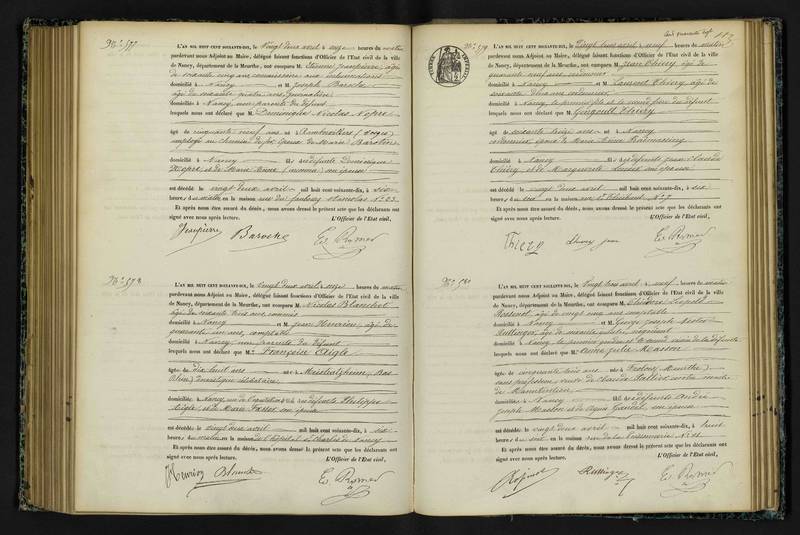 No. 577
L'AN MIL HUIT CENT SOIXANTE-DIX, le Vingt deux avril à onze heures du matin
pardevant nous Adjoint au Maire, délégué faisant fonctions d'Officier de l'Etat civil de la ville
de Nancy, département de la Meurthe, ont comparu M. Etienne Jeanpierre, âgé
de soixante cinq ans, commissaire aux inhumations
domicilié à Nancy et M. Joseph Baroche
âgé de soixante quatre ans, Journalier
domicilié à Nancy, non parents du défunt
lesquels nous ont déclaré que M. Dominique Nicolas Nopre
âgé de cinquante neuf ans né à Rambervillers (Vosges)
employé au chemin de fer, époux de Marie
domicilié à Nancy fils de défunts Dominique
Nopre, et de Marie Anne son épouse
est décédé le vingt deux avril mil huit cent soixante-dix, à six
heures du matin en la maison rue du faubourg Stanislas No. 23
Et après nous être assuré du décès, nous avons dressé le présent acte que les déclarants ont
signé avec nous après lecture. L'Officier de l'Etat civil,
Jeanpierre Baroche Ed. Romer
No. 578
L'AN MIL HUIT CENT SOIXANTE-DIX, le vingt deux avril à onze heures du matin
pardevant nous Adjoint au Maire, délégué faisant fonctions d'Officier de l'Etat civil de la ville
de Nancy, département de la Meurthe, ont comparu M. Nicolas Blanchot
âgé de soixante trois ans, commis
domicilié à Nancy et M. Jean Henrion, âgé de
quarante un ans, comptable
domicilié à Nancy, non parents du défunt
lesquels nous ont déclaré que M. François Aigle
âgé de dix huit ans né à (Bas
Rhin) domestique célibataire
domicilié à Nancy, rue de l'équitation fils de défunts Philippe
Aigle, et de Marie son épouse
est décédé le vingt deux avril mil huit cent soixante-dix, à six
heures du matin en la maison de l'hôpital St Charles de Nancy
Et après nous être assuré du décès, nous avons dressé le présent acte que les déclarants ont
signé avec nous après lecture. L'Officier de l'Etat civil,
Henrion Blanchot Ed. Romer
No. 579
L'AN MIL HUIT CENT SOIXANTE-DIX, le Vingt trois avril à neuf heures du matin
pardevant nous Adjoint au Maire, délégué faisant fonctions d'Officier de l'Etat civil de la ville
de Nancy, département de la Meurthe, ont comparu M. Jean Thiéry âgé de
quarante neuf ans, cordonnier
domicilié à Nancy et M. Laurent Thiéry, âgé de
soixante ans, cordonnier
domicilié à Nancy, le premier fils et le second frère du défunt
lesquels nous ont déclaré que M. Thiéry
âgé de soixante treize ans né à Nancy
cordonnier, époux de Marie Anne
domicilié à Nancy fils de défunts Jean Claude
Thiéry et de Marguerite son épouse
est décédé le vingt deux avril mil huit cent soixante-dix, à six
heures du soir en la maison rue St No. 7
Et après nous être assuré du décès, nous avons dressé le présent acte que les déclarants ont
signé avec nous après lecture. L'Officier de l'Etat civil,
Thiery thiery jean Ed. Romer
No. 580
L'AN MIL HUIT CENT SOIXANTE-DIX, le Vingt trois avril à neuf heures du matin
pardevant nous Adjoint au Maire, délégué faisant fonctions d'Officier de l'Etat civil de la ville
de Nancy, département de la Meurthe, ont comparu M. Théodore Léopold
âgé de vingt cinq ans, comptable
domicilié à Nancy et M. George Joseph
Rullinger, âgé de soixante
domicilié à Nancy, le premier gendre et le second voisin de la défunte
lesquels nous ont déclaré que M. Anne Julie Masson
âgée de cinquante trois ans née à (Meurthe)
sans profession, veuve de Claude
domiciliée à Nancy fille de défunts André
Joseph Masson et de son épouse
est décédée le vingt deux avril mil huit cent soixante-dix, à huit
heures du soir en la maison rue de la Poissonnerie No. 11
Et après nous être assuré du décès, nous avons dressé le présent acte que les déclarants ont
signé avec nous après lecture. L'Officier de l'Etat civil,
Rullinger Ed. Romer